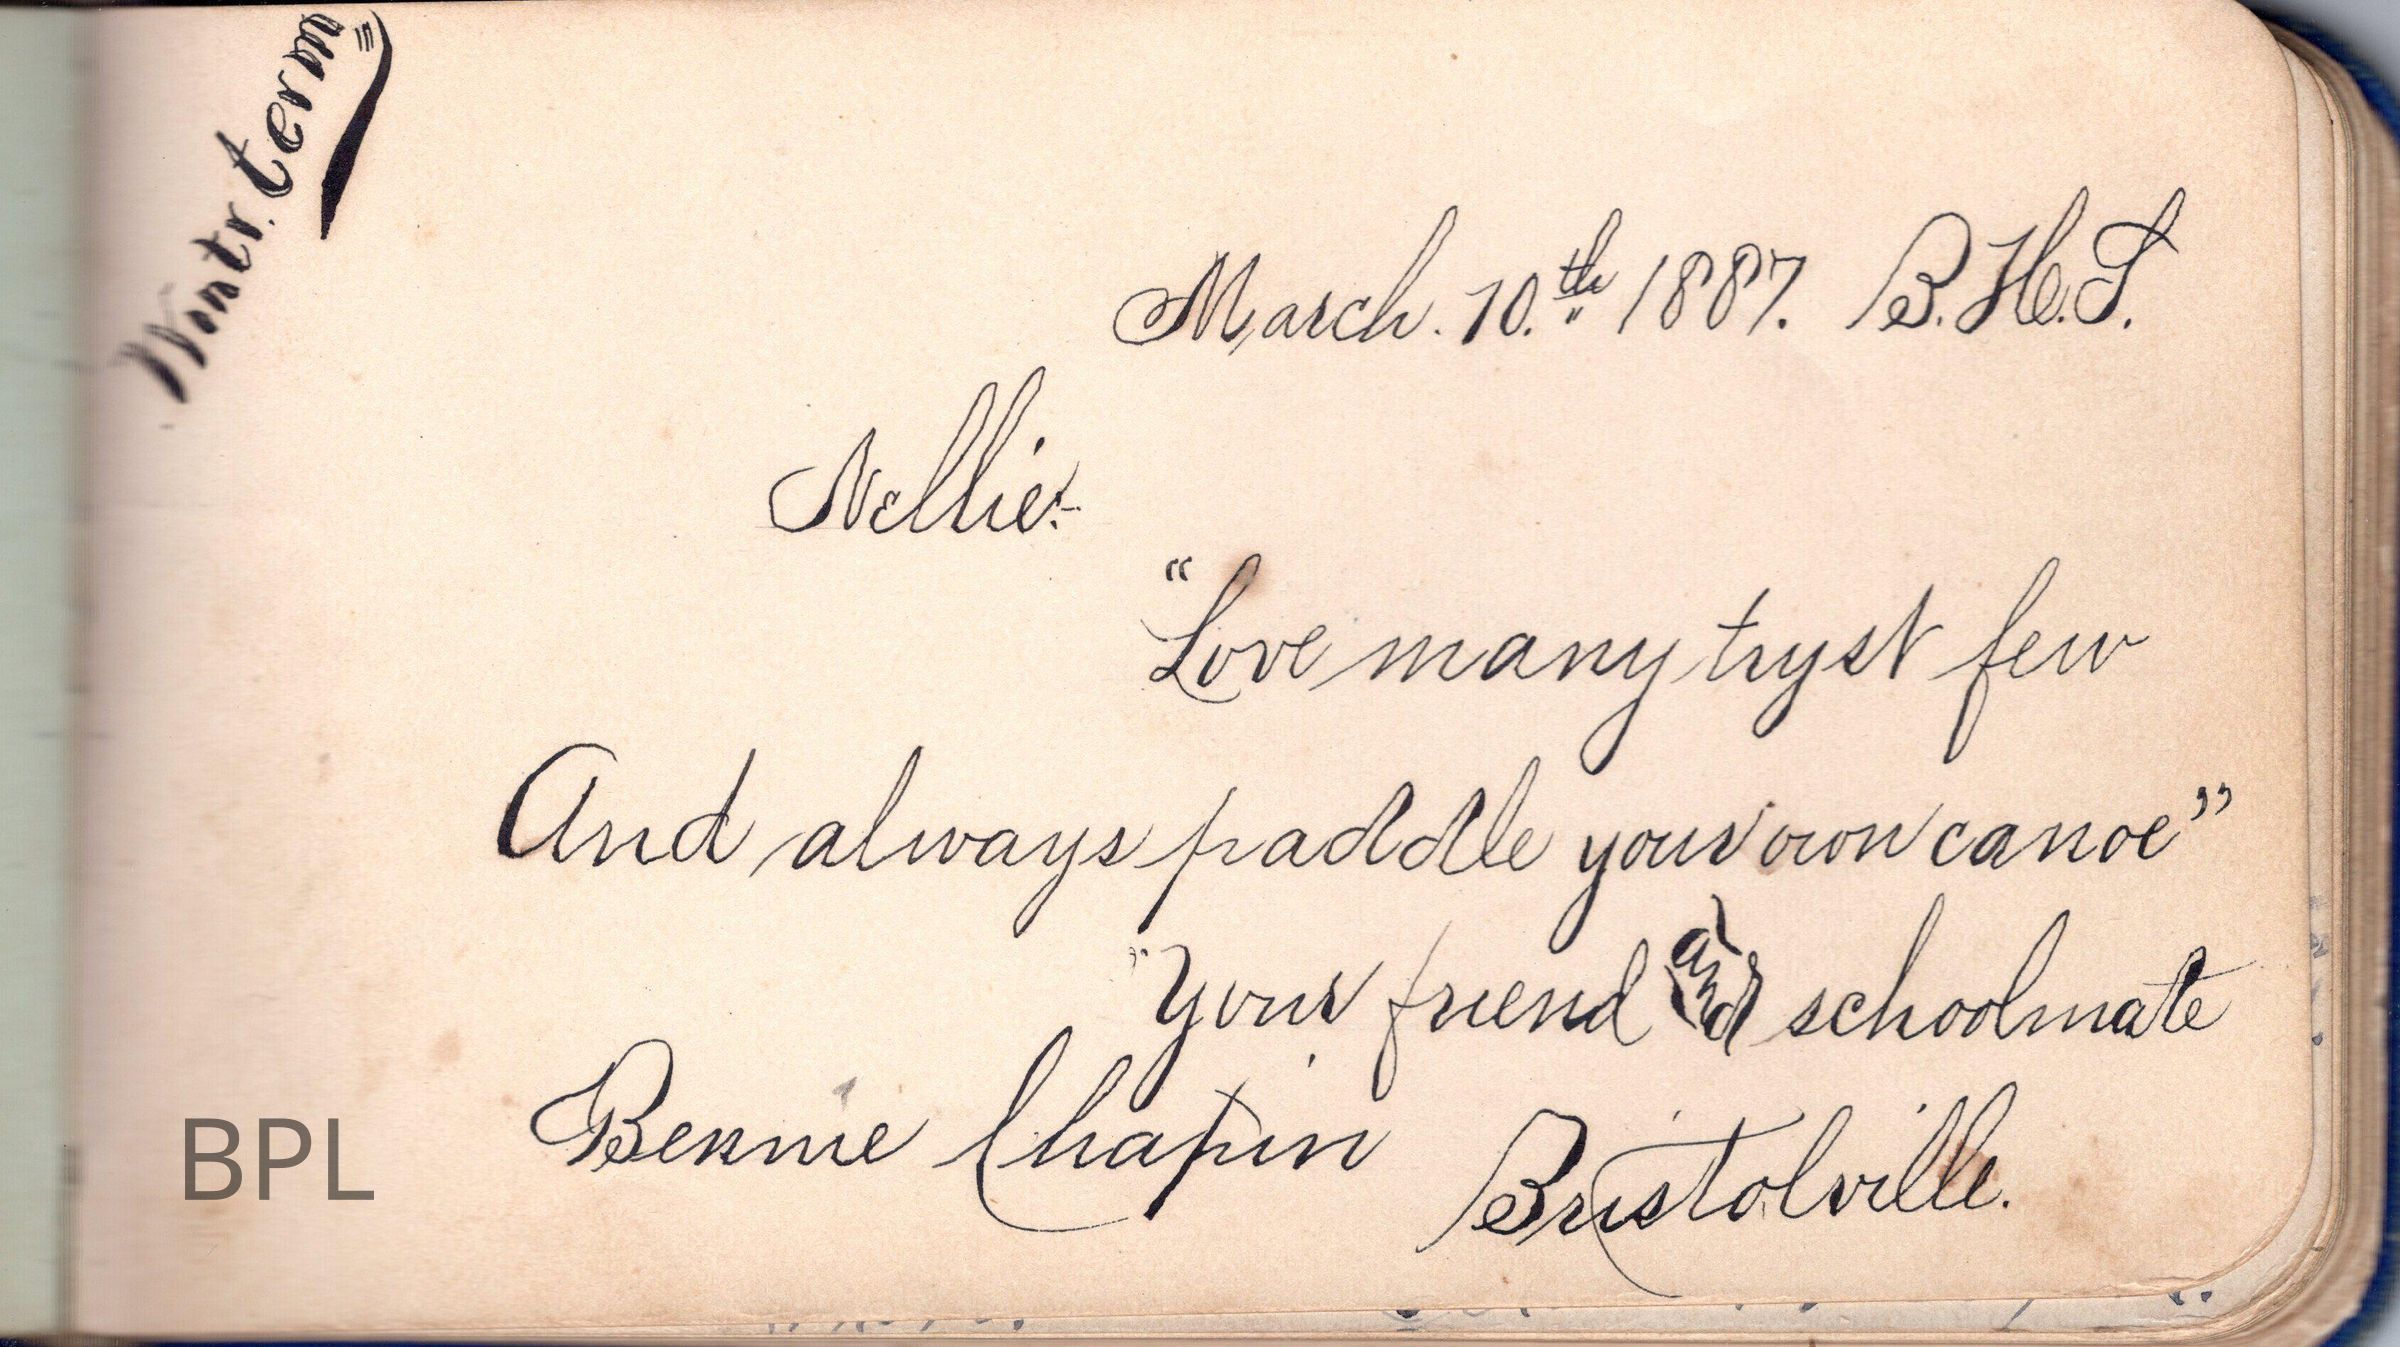 Wintr. term
March. 10.th 1887. B.H.S.
Nellie:-
"Love many tryst few
And always paddle your own canoe"
"Your friend and schoolmate
Bennie Chapin Bristolville.
BPL